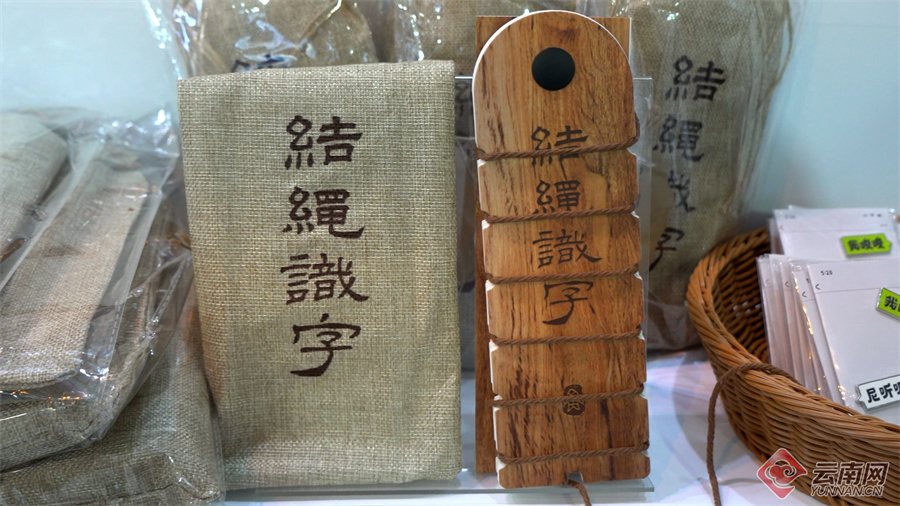 結繩識字
結繩識字
結繩
字
5:20
尼听
云南网
YUNNAN.CN